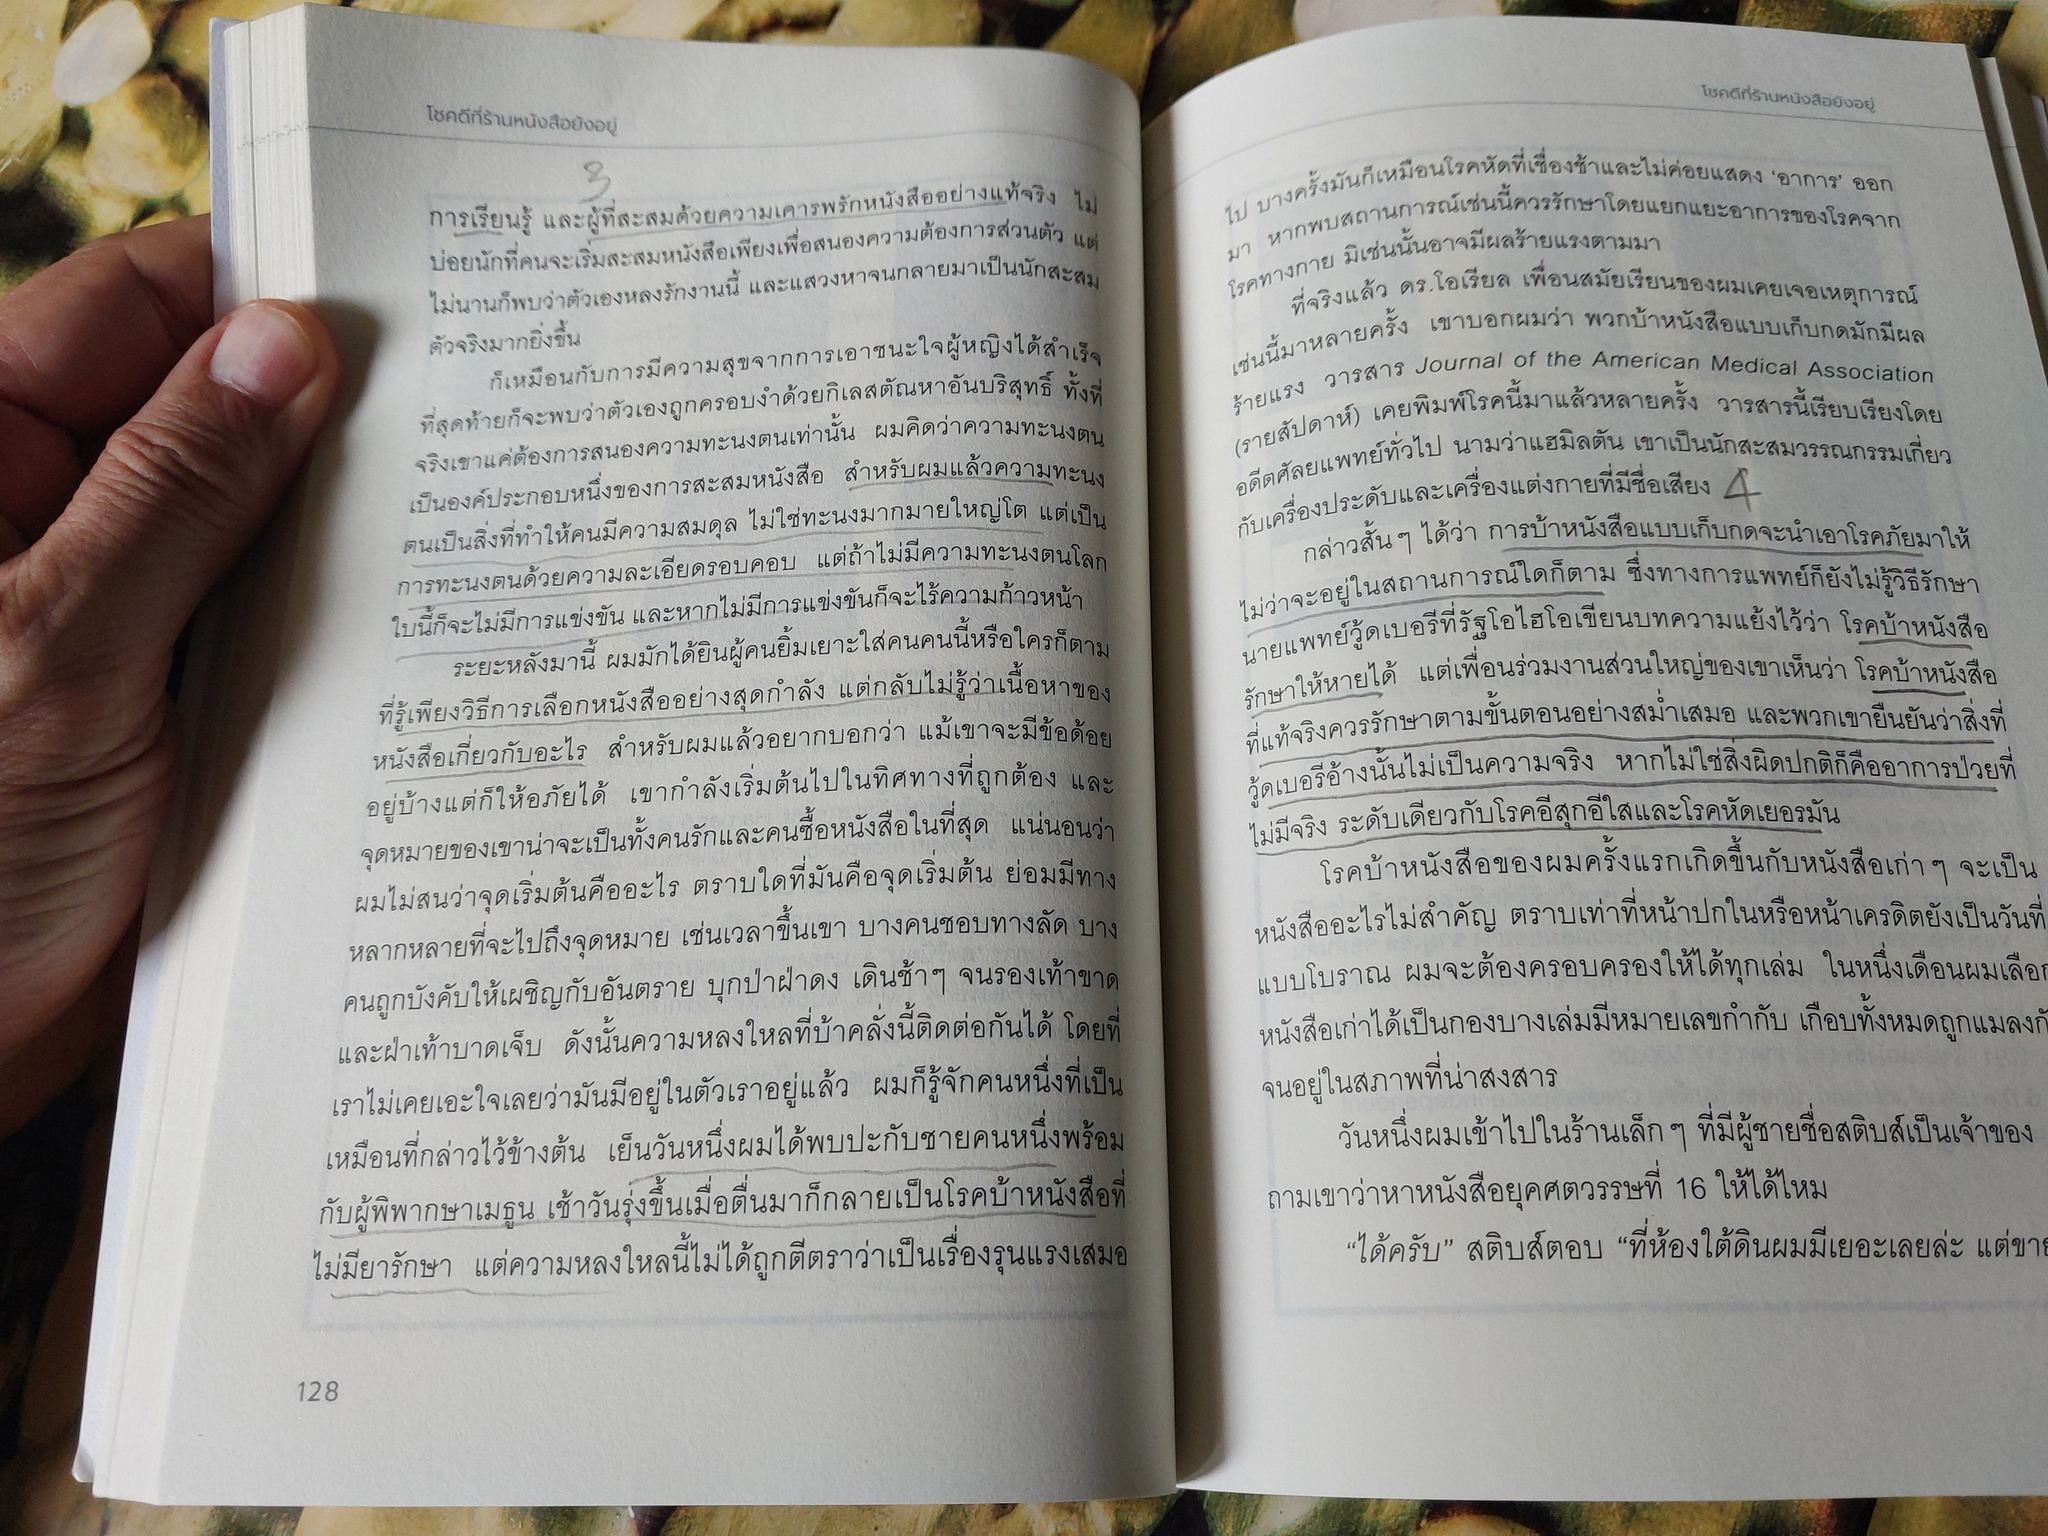 โชคดีที่ร้านหนังสือยังอยู่
3
การเรียนรู้ และผู้ที่สะสมด้วยความเคารพรักหนังสืออย่างแท้จริง ไม่
บ่อยนักที่คนจะเริ่มสะสมหนังสือเพียงเพื่อสนองความต้องการส่วนตัว แต่
ไม่นานก็พบว่าตัวเองหลงรักงานนี้ และแสวงหาจนกลายมาเป็นนักสะสม
ตัวจริงมากยิ่งขึ้น
ก็เหมือนกับการมีความสุขจากการเอาชนะใจผู้หญิงได้สำเร็จ
ที่สุดท้ายก็จะพบว่าตัวเองถูกครอบงำด้วยกิเลสตัณหาอันบริสุทธิ์ ทั้งที่
จริงเขาแค่ต้องการสนองความทะนงตนเท่านั้น ผมคิดว่าความทะนงตน
เป็นองค์ประกอบหนึ่งของการสะสมหนังสือ สำหรับผมแล้วความทะนง
ตนเป็นสิ่งที่ทำให้คนมีความสมดุล ไม่ใช่ทะนงมากมายใหญ่โต แต่เป็น
การทะนงตนด้วยความละเอียดรอบคอบ แต่ถ้าไม่มีความทะนงตนโลก
ใบนี้ก็จะไม่มีการแข่งขัน และหากไม่มีการแข่งขันก็จะไร้ความก้าวหน้า
ระยะหลังมานี้ ผมมักได้ยินผู้คนยิ้มเยาะใส่คนคนนี้หรือใครก็ตาม
ที่รู้เพียงวิธีการเลือกหนังสืออย่างสุดกำลัง แต่กลับไม่รู้ว่าเนื้อหาของ
หนังสือเกี่ยวกับอะไร สำหรับผมแล้วอยากบอกว่า แม้เขาจะมีข้อด้อย
อยู่บ้างแต่ก็ให้อภัยได้ เขากำลังเริ่มต้นไปในทิศทางที่ถูกต้อง และ
จุดหมายของเขาน่าจะเป็นทั้งคนรักและคนซื้อหนังสือในที่สุด แน่นอนว่า
ผมไม่สนว่าจุดเริ่มต้นคืออะไร ตราบใดที่มันคือจุดเริ่มต้น ย่อมมีทาง
หลากหลายที่จะไปถึงจุดหมาย เช่นเวลาขึ้นเขา บางคนชอบทางลัด บาง
คนถูกบังคับให้เผชิญกับอันตราย บุกป่าฝ่าดง เดินช้าๆ จนรองเท้าขาด
และฝ่าเท้าบาดเจ็บ ดังนั้นความหลงใหลที่บ้าคลั่งนี้ติดต่อกันได้ โดยที่
เราไม่เคยเอะใจเลยว่ามันมีอยู่ในตัวเราอยู่แล้ว ผมก็รู้จักคนหนึ่งที่เป็น
เหมือนที่กล่าวไว้ข้างต้น เย็นวันหนึ่งผมได้พบปะกับชายคนหนึ่งพร้อม
กับผู้พิพากษาเมธูน เช้าวันรุ่งขึ้นเมื่อตื่นมาก็กลายเป็นโรคบ้าหนังสือที่
ไม่มียารักษา แต่ความหลงใหลนี้ไม่ได้ถูกตีตราว่าเป็นเรื่องรุนแรงเสมอ
128
โชคดีที่ร้านหนังสือยังอยู่
ไป บางครั้งมันก็เหมือนโรคหัดที่เชื่องช้าและไม่ค่อยแสดง ‘อาการ’ ออก
มา หากพบสถานการณ์เช่นนี้ควรรักษาโดยแยกแยะอาการของโรคจาก
โรคทางกาย มิเช่นนั้นอาจมีผลร้ายแรงตามมา
ที่จริงแล้ว ดร.โอเรียล เพื่อนสมัยเรียนของผมเคยเจอเหตุการณ์
เช่นนี้มาหลายครั้ง เขาบอกผมว่า พวกบ้าหนังสือแบบเก็บกดมักมีผล
ร้ายแรง วารสาร Journal of the American Medical Association
(รายสัปดาห์) เคยพิมพ์โรคนี้มาแล้วหลายครั้ง วารสารนี้เรียบเรียงโดย
อดีตศัลยแพทย์ทั่วไป นามว่าแฮมิลตัน เขาเป็นนักสะสมวรรณกรรมเกี่ยว
กับเครื่องประดับและเครื่องแต่งกายที่มีชื่อเสียง 4
กล่าวสั้นๆ ได้ว่า การบ้าหนังสือแบบเก็บกดจะนำเอาโรคภัยมาให้
ไม่ว่าจะอยู่ในสถานการณ์ใดก็ตาม ซึ่งทางการแพทย์ก็ยังไม่รู้วิธีรักษา
นายแพทย์วู้ดเบอรีที่รัฐโอไฮโอเขียนบทความแย้งไว้ว่า โรคบ้าหนังสือ
รักษาให้หายได้ แต่เพื่อนร่วมงานส่วนใหญ่ของเขาเห็นว่า โรคบ้าหนังสือ
ที่แท้จริงควรรักษาตามขั้นตอนอย่างสม่ำเสมอ และพวกเขายืนยันว่าสิ่งที่
วู้ดเบอรีอ้างนั้นไม่เป็นความจริง หากไม่ใช่สิ่งผิดปกติก็คืออาการป่วยที่
ไม่มีจริง ระดับเดียวกับโรคอีสุกอีใสและโรคหัดเยอรมัน
โรคบ้าหนังสือของผมครั้งแรกเกิดขึ้นกับหนังสือเก่าๆ จะเป็น
หนังสืออะไรไม่สำคัญ ตราบเท่าที่หน้าปกในหรือหน้าเครดิตยังเป็นวันที่
แบบโบราณ ผมจะต้องครอบครองให้ได้ทุกเล่ม ในหนึ่งเดือนผมเลือก
หนังสือเก่าได้เป็นกองบางเล่มมีหมายเลขกำกับ เกือบทั้งหมดถูกแมลงกั
จนอยู่ในสภาพที่น่าสงสาร
วันหนึ่งผมเข้าไปในร้านเล็กๆ ที่มีผู้ชายชื่อสติบส์เป็นเจ้าของ
ถามเขาว่าหาหนังสือยุคศตวรรษที่ 16 ให้ได้ไหม
“ได้ครับ” สติบส์ตอบ “ที่ห้องใต้ดินผมมีเยอะเลยล่ะ แต่ขาย